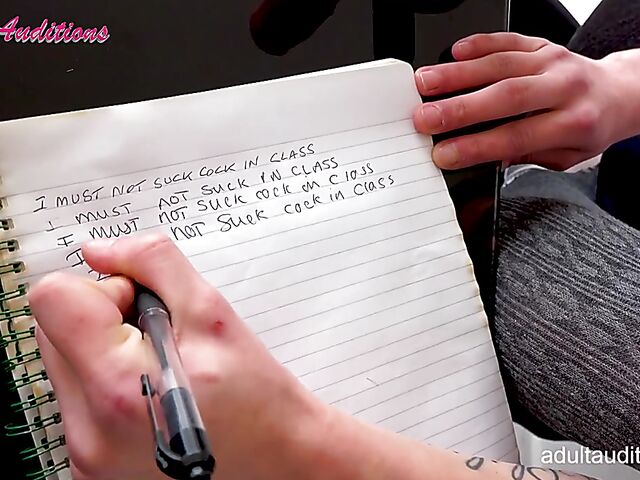 Auditions
I MUST NOT SUCK COCK IN CLASS
I MUST NOT SUCK IN CLASS
I MUST NOT SUCK COCK IN CLASS
I NOT SUCK COCK in CLASS
adultaudit